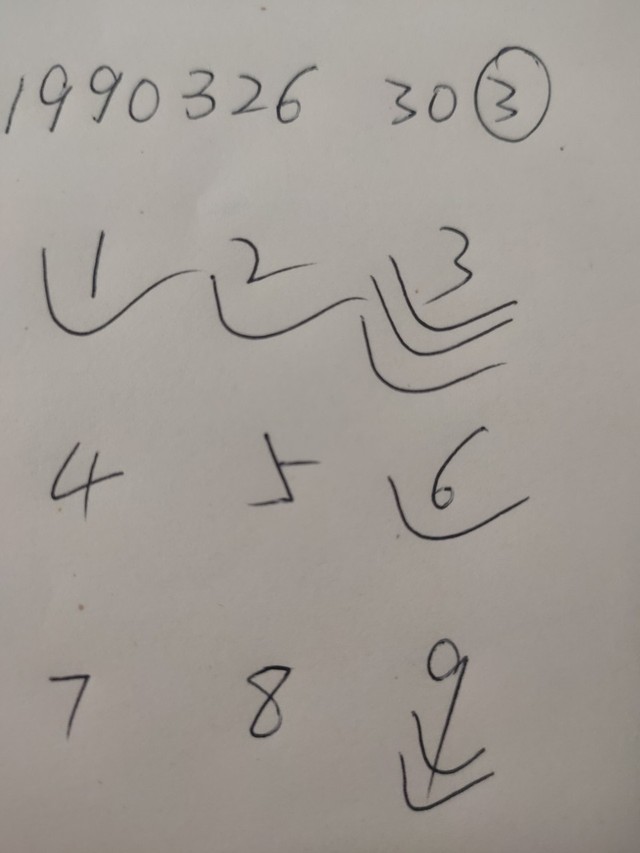 1990326 30 3
1 2 3
4 5 6
7 8 9